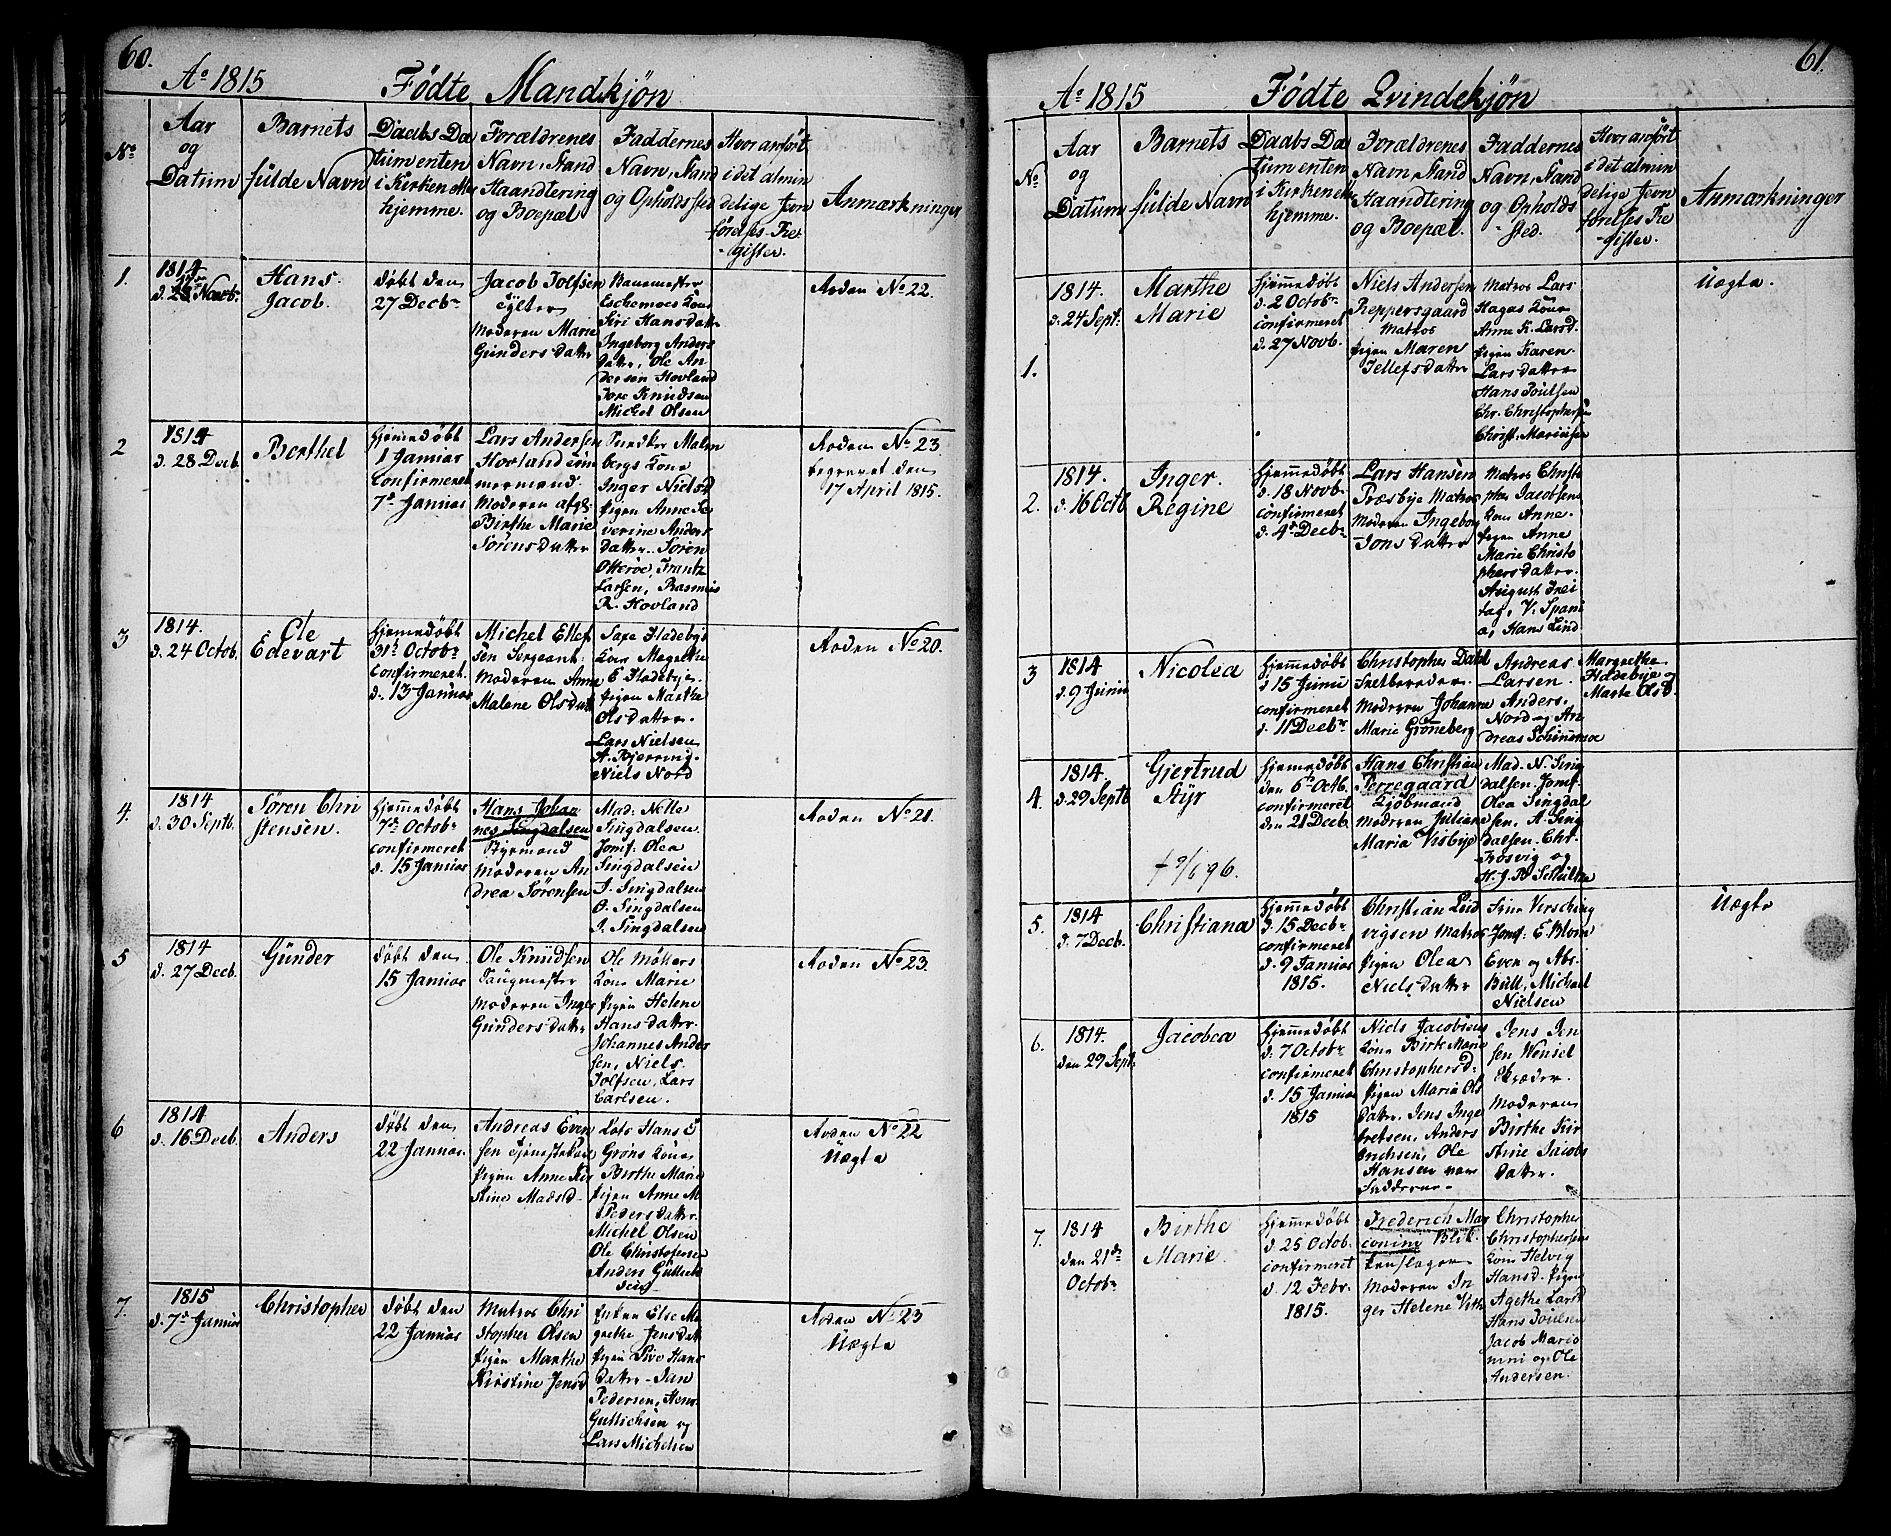 60.
Aº 1815 Födte Mandkjön
Nº
Aar
og
Datum
Barnets
fulde Navn
Daabs Da
tum enten
i Kirken eller
hjemme.
Forældrenes
Navn, Stand
Haandtering
og Boepæl
Faddernes
Navn, Stand
og Opholdssted
Hvor anfört
i det almin
delige Jevn
förelses-Re-
gister.
Anmærkninger
1.
1814
d. 28 Novbr
Hans
Jacob.
döbt den
27 Decbr
Jacob Tolfsen
Moderen Marie
Gunders datter
Kone
Siri Hansdatter
Ingeborg Anders
datter, Ole An
dersen Hovland
Tore Knudsen
Michel Olsen
Aoden Nº 22.
2
1814
d. 28 Decb.
Berthel
hjemmedöbt
1 Januar
confirmeret
7de Januar
Lars Andersen
Hovland töm
mermand.
Moderen
Birthe Marie
Sörens datter
bergs Kone
Inger Nielsd
Pigen Anne Se
verine Anders
datter. Sören
Otteröe, Frantz
Larsen, Rasmus
R. Hovland
Aoden Nº 23
begravet den
17 April 1815.
3
1814.
d. 24 Octob.
Ole
Edevart
hjemmedöbt
31 Octobr
confirmeret
d. 13 Januar
Michel Ellef
sen Sergeant.
Moderen Anne
Malene Olsdatter
Pigen Marthe
Olsdatter.
Lars Nielsen
A. Bjerring
Niels Nord
Aoden Nº 20.
4.
1814
d. 30 Septb.
Sören Chri
stensen.
hjemmedöbt
7de Octobr
confirmeret
d. 15 Januar
Hans Johan
nes Singdalsen
Styrmand
Moderen An
drea Sörensen
Mad: Nille
Singdalsen
Jomf: Olea
Singdalsen
J. Singdalsen
O. Singdalsen
J. Singdalsen
Aoden Nº 21.
5
1814
d. 27 Decb.
Gunder
döbt den
15 Januar
Ole Knudsen
Taugmester
Moderen Inger
Gunders datter
Ole Mökers
Kone Marie
Pigen Helene
Hans datter.
Johannes Ander
sen, Niels
Tolfsen, Lars
Carlsen.
Aoden Nº 23.
6
1814
d. 16 Decb.
Anders
döbt den
22 Januar.
Andreas Even
sen Tjenestekarl
Pigen Anne Kir
stine Madsd.
Lots Hans E
Gröns Kone
Birthe Marie
Pigen Anne M
Pedersdatter.
Michel Olsen
Ole Christofersen
Anders Gullich
sen
Aoden Nº 22
Uægte
7.
1815
d. 7de Januar
Christopher
döbt den
22 Januar
Matros Chri
stopher Olsen
Pigen Marthe
Kirstine Jensd
Enken Else Ma
grethe Jensdatt
Pigen Hans
datter - Jan
Pedersen, Hans
Gullichsen og
Lars Michelsen
Aoden Nº 23
Uægte
61.
Aº 1815 Födte Qvindekjön
Nº
Aar
og
Datum
Barnets
fulde Navn
Daabs Da
tum enten
i Kirken ell
hjemme.
Forældrenes
Navn, Stand
Haandtering
og Boepæl.
Faddernes
Navn, Stand
og Opholds
sted.
Hvor anfört
i det almin
delige Jevn
förelses Re
gister.
Anmærkninger
1.
1814.
d. 24 Sept:
Marthe
Marie
hjemmedöbt
d. 2 Octobr
confirmeret
d. 27 Novb.
Niels Andersen
Reppersgaard
Matros
Pigen Maren
Tellefsdatter
Matros Lars
Hagas Kone
Anne K. Larsd.
Pigen Karen
Larsdatter
Hans Poulsen
Chr. Christophersen
Christ. Mariusen
Uægte.
2.
1814.
d. 16 Octb
Inger
Regine
hjemmedöbt
d. 18 Novb.
confirmeret
d. 4de Decbr
Lars Hansen
Præsbye Matros
Moderen Ingeborg
Jons datter
Matros Christo
pher Jacobsens
Kone Anne.
Pigen Anne
Marie Christo
phersdatter.
August Frei
tag, V. Spani
a, Hans Lind
3
1814
d. 9 Junii
Nicolea
hjemmedöbt
d. 15 Junii
confirmeret
d. 11 Decbr
Christopher Dahl
Moderen Johanne
Marie Gröneberg
Andreas
Larsen.
Anders
Nord og An
dreas
Margrethe
Flodebye og
Marte Olsd.
4.
1814
d. 29 Septb
Gjertrud
Styr
† 9/1 96.
hjemmedöbt
den 6te Octb.
confirmeret
den 21 Decb.
Hans Christian
Perregaard
Kjöbmand
Moderen Juliane
Maria Visbye
Mad. N. Sing
dalsen, Jomf.
Olea Singdal
sen, A. Sing
dalsen, Chr.
Trosvig og
H. J. B. Schultze
5.
1814
d. 7 Decb.
Christiana
hjemmedöbt
d. 15 Decbr
confirmeret
d. 9 Januar
1815.
Christian Lud
vigsen Matros
Pigen Olea
Niels datter
Jomf: E. Blom
Even og Abr.
Bull, Michael
Nielsen
Uægte
6.
1814.
den 29 Sept:
Jacobea
hjemmedöbt
d. 7 Octobr
confirmeret
d. 15 Januar
1815
Niels Jacobsens
Kone Birte Marie
Christophersd.
Pigen Maria Ols
datter, Jens Inge
bretsen, Anders
Erichsen, Ole
Hansen var
Fadderne.
Jens Jen
sen Wensel
Skræder.
Moderen
Birthe Kir
stine Jacobs
datter.
7.
1814
den 21de
Octobr
Birthe
Marie.
hjemmedöbt
d. 25 Octob.
confirmeret
d. 12 Febr.
1815.
Frederich Mar
conini Blik
kenslager
Moderen In
ger Helene Vith
Christopher
Christophersens
Kone Helvig
Hansd. Pigen
Agethe Larsd
Hans Poulsen
Jacob Marco
nini og Ole
Andersen.